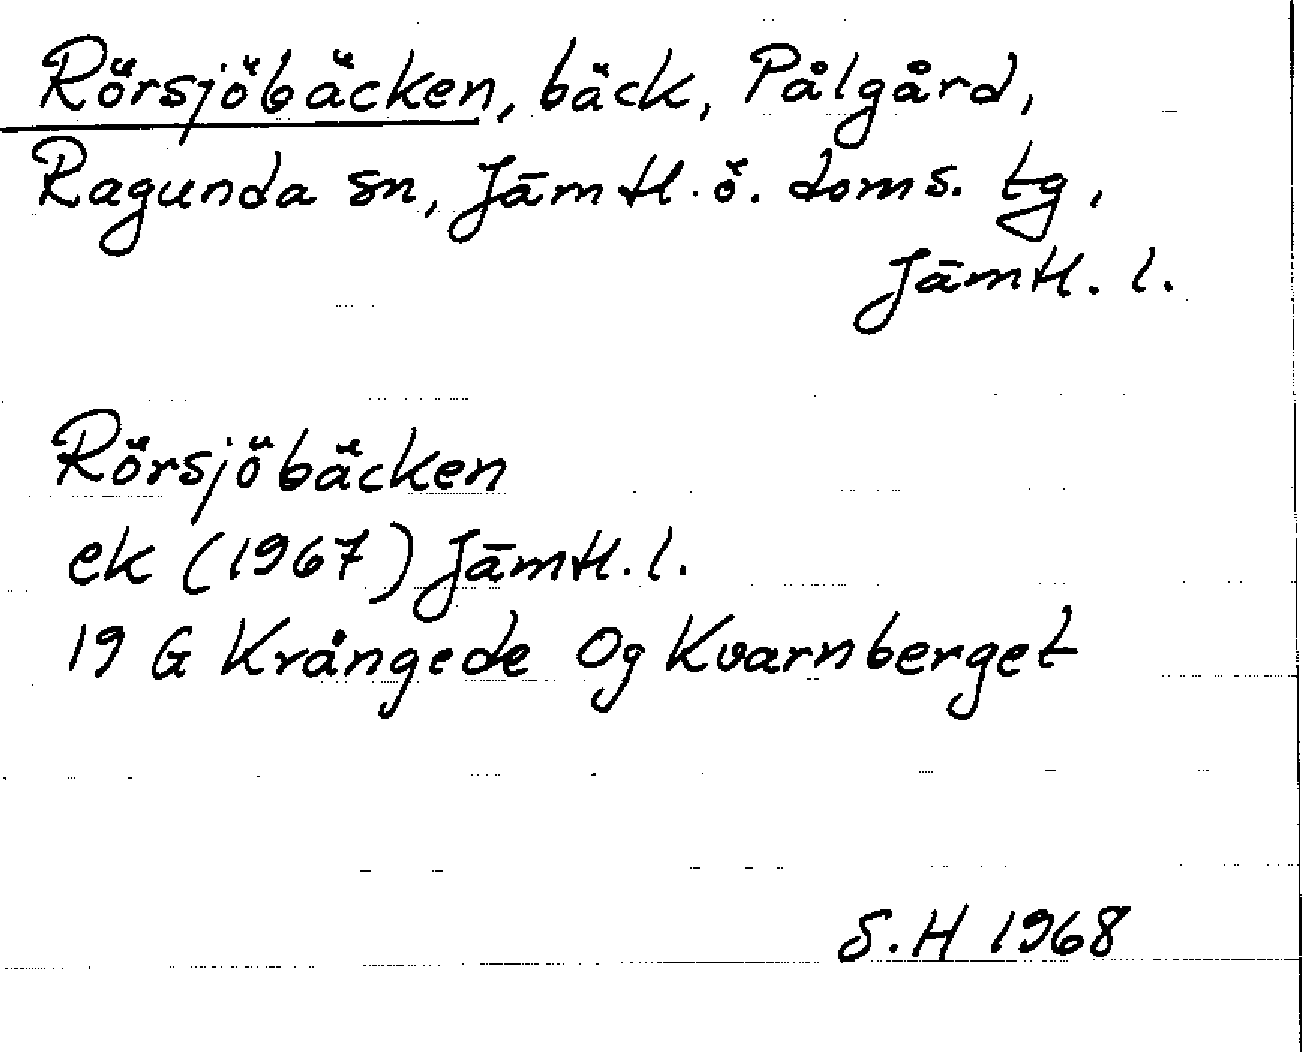 Rörsjöbäcken, bäck, Pålgård,
Ragunda sn, Jämtl. ö. doms. tg,
Jämtl. l.
Rörsjöbäcken
ek (1967) Jämtl. l.
19 G Krångede Og Kvarnberget
S. H 1968